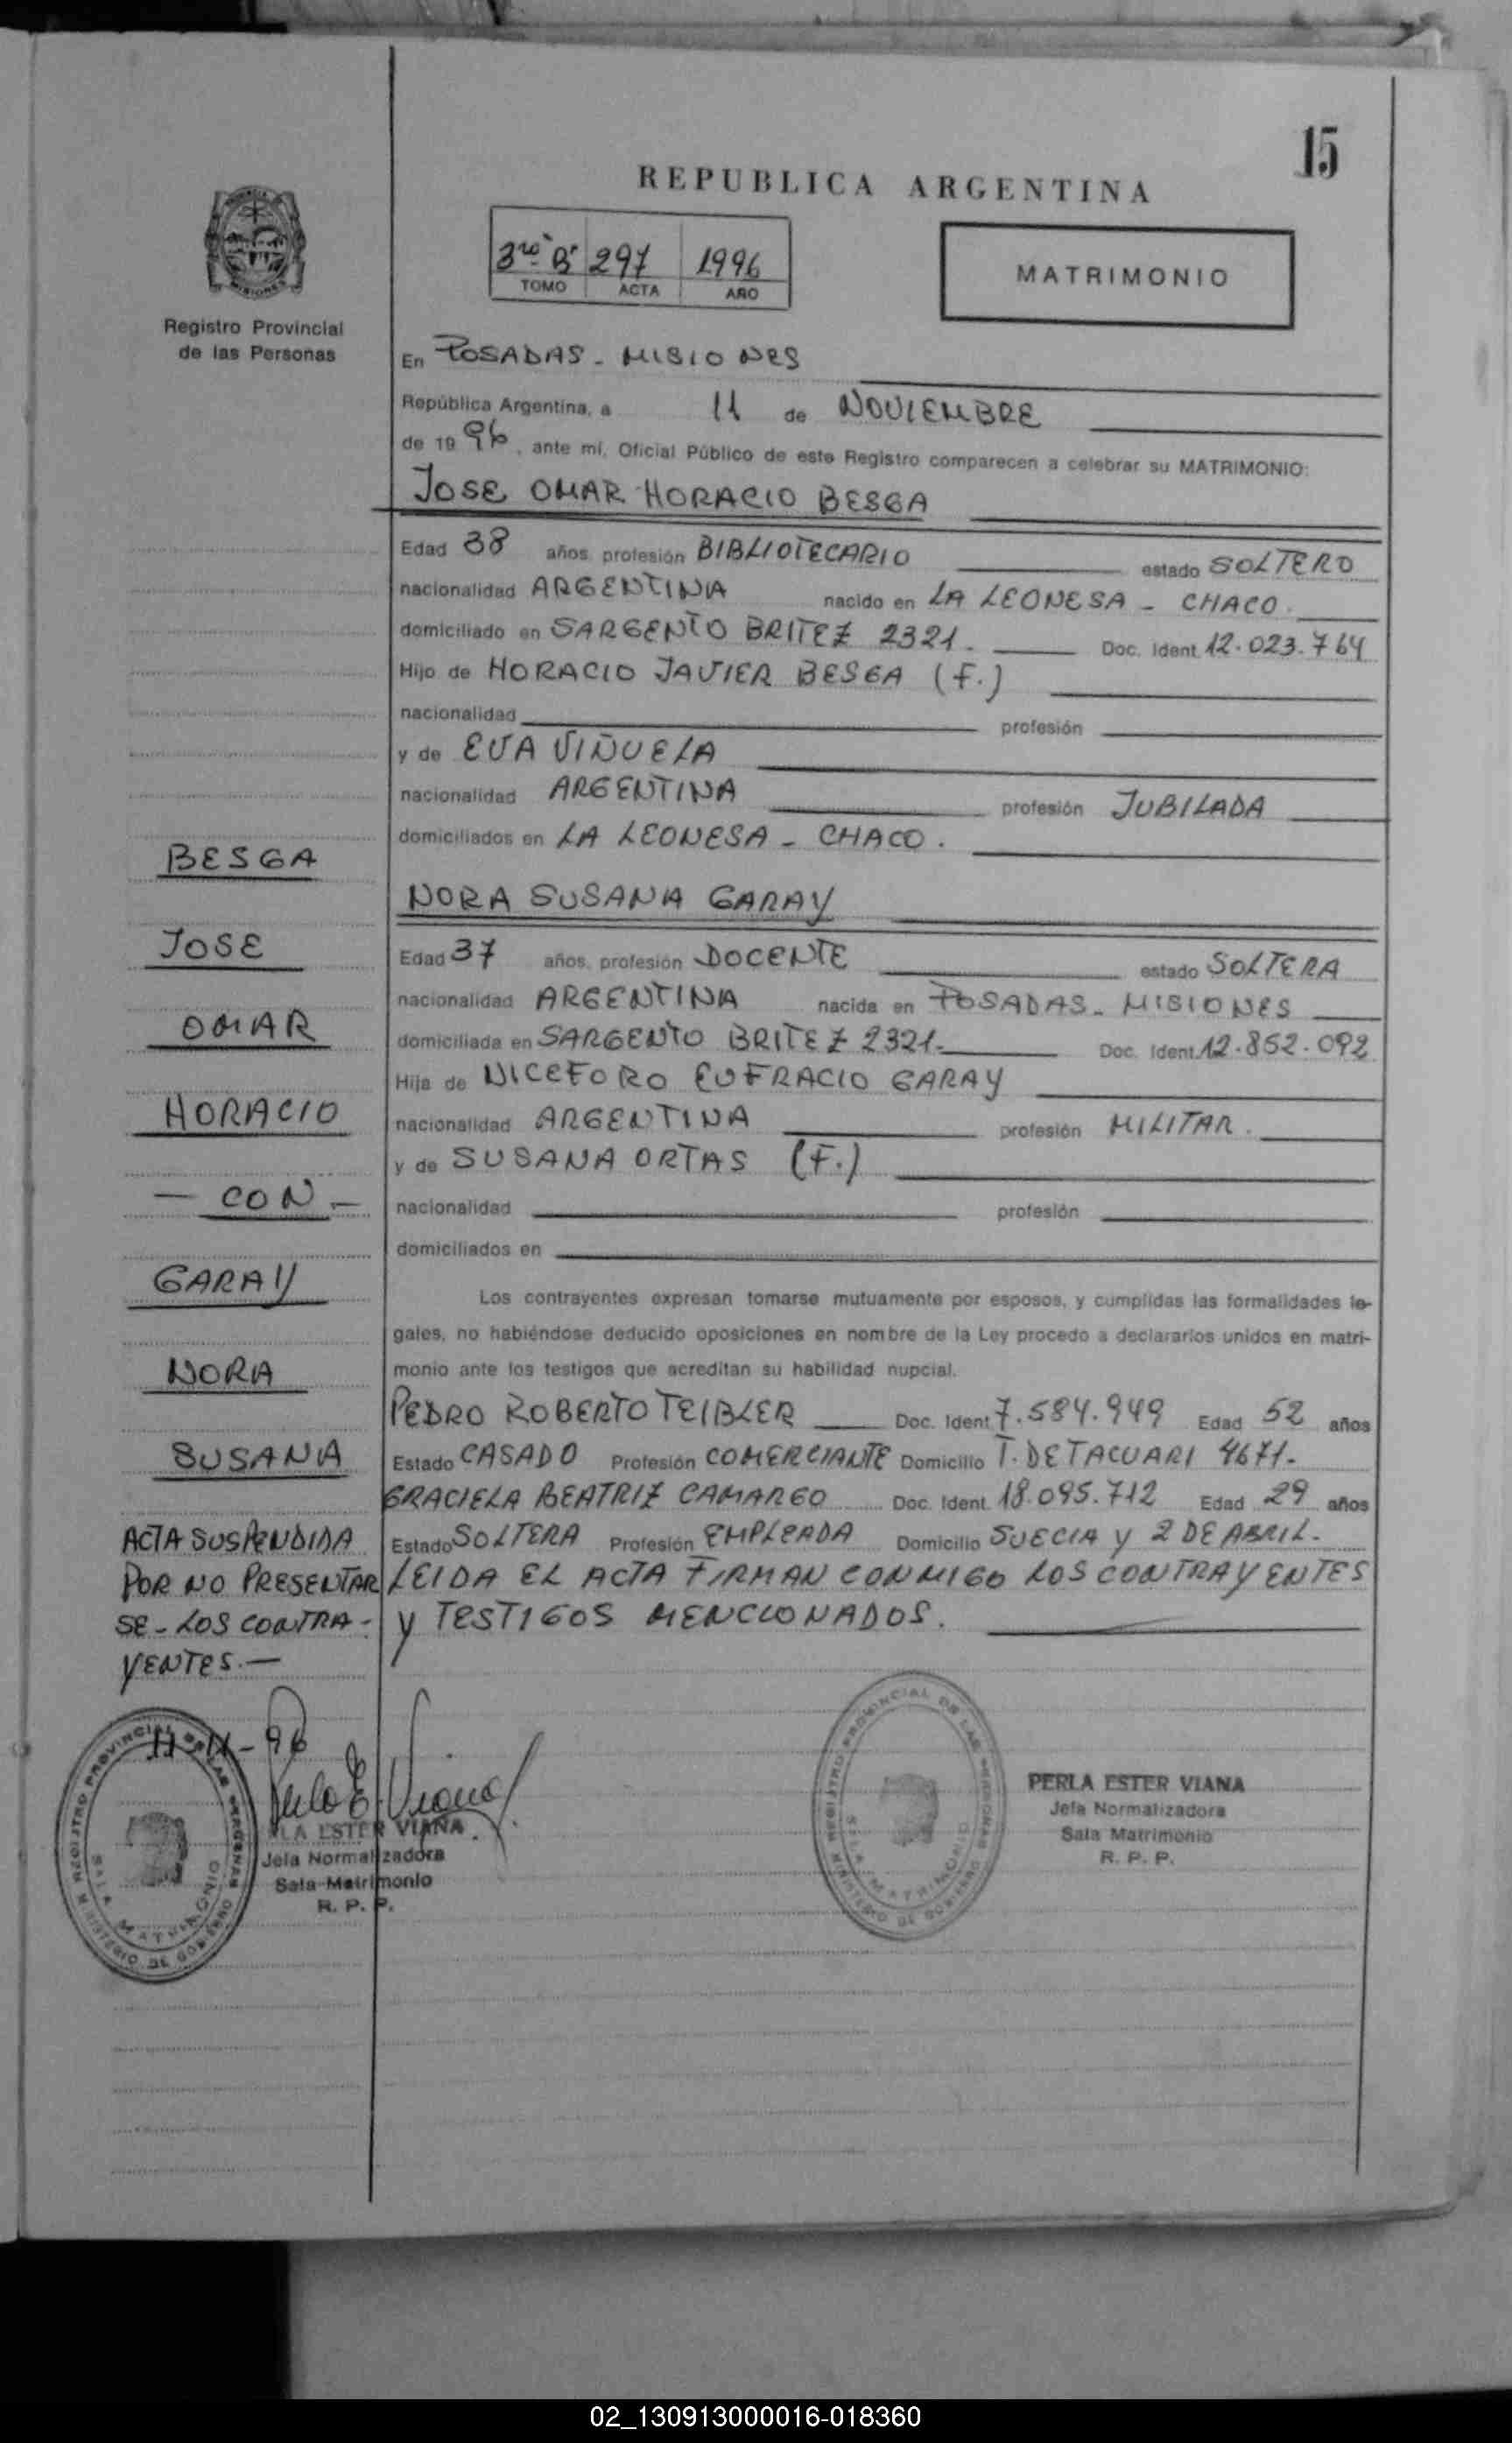 15
REPUBLICA ARGENTINA
3ro "B" 297 1996
TOMO ACTA AÑO
MATRIMONIO
MISIONES
Registro Provincial
de las Personas
En POSADAS - MISIONES
República Argentina, a 11 de NOVIEMBRE
de 19 96, ante mí, Oficial Público de este Registro comparecen a celebrar su MATRIMONIO:
JOSE OMAR HORACIO BESGA
Edad 38 años, profesión BIBLIOTECARIO estado SOLTERO
nacionalidad ARGENTINA nacido en LA LEONESA - CHACO.
domiciliado en SARGENTO BRITEZ 2321. Doc. Ident. 12.023.764
Hijo de HORACIO JAVIER BESGA (F.)
nacionalidad profesión
y de EVA VIÑUELA
nacionalidad ARGENTINA profesión JUBILADA
domiciliados en LA LEONESA - CHACO.
NORA SUSANA GARAY
Edad 37 años, profesión DOCENTE estado SOLTERA
nacionalidad ARGENTINA nacida en POSADAS - MISIONES
domiciliada en SARGENTO BRITEZ 2321. Doc. Ident. 12.852.092
Hija de NICEFORO EUFRACIO GARAY
nacionalidad ARGENTINA profesión MILITAR.
y de SUSANA ORTAS (F.)
nacionalidad profesión
domiciliados en
Los contrayentes expresan tomarse mutuamente por esposos, y cumplidas las formalidades le-
gales, no habiéndose deducido oposiciones en nombre de la Ley procedo a declararlos unidos en matri-
monio ante los testigos que acreditan su habilidad nupcial.
PEDRO ROBERTO TEIBLER Doc. Ident. 7.584.949 Edad 52 años
Estado CASADO Profesión COMERCIANTE Domicilio T. DE TACUARI 4671-
GRACIELA BEATRIZ CAMARGO Doc. Ident. 18.095.712 Edad 29 años
Estado SOLTERA Profesión EMPLEADA Domicilio SUECIA y 2 DE ABRIL-
LEIDA EL ACTA FIRMAN CONMIGO LOS CONTRAYENTES
y TESTIGOS MENCIONADOS.
BESGA
JOSE
OMAR
HORACIO
- CON -
GARAY
NORA
SUSANA
ACTA SUSPENDIDA
POR NO PRESENTAR
SE - LOS CONTRA-
YENTES.-
11-11-96
Perla E. Viana
PERLA ESTER VIANA
Jefa Normalizadora
Sala Matrimonio
R. P. P.
REGISTRO PROVINCIAL DE LAS PERSONAS
MINISTERIO DE GOBIERNO
SALA MATRIMONIO
REGISTRO PROVINCIAL DE LAS PERSONAS
MINISTERIO DE GOBIERNO
SALA MATRIMONIO
PERLA ESTER VIANA
Jefa Normalizadora
Sala Matrimonio
R. P. P.
02_130913000016-018360